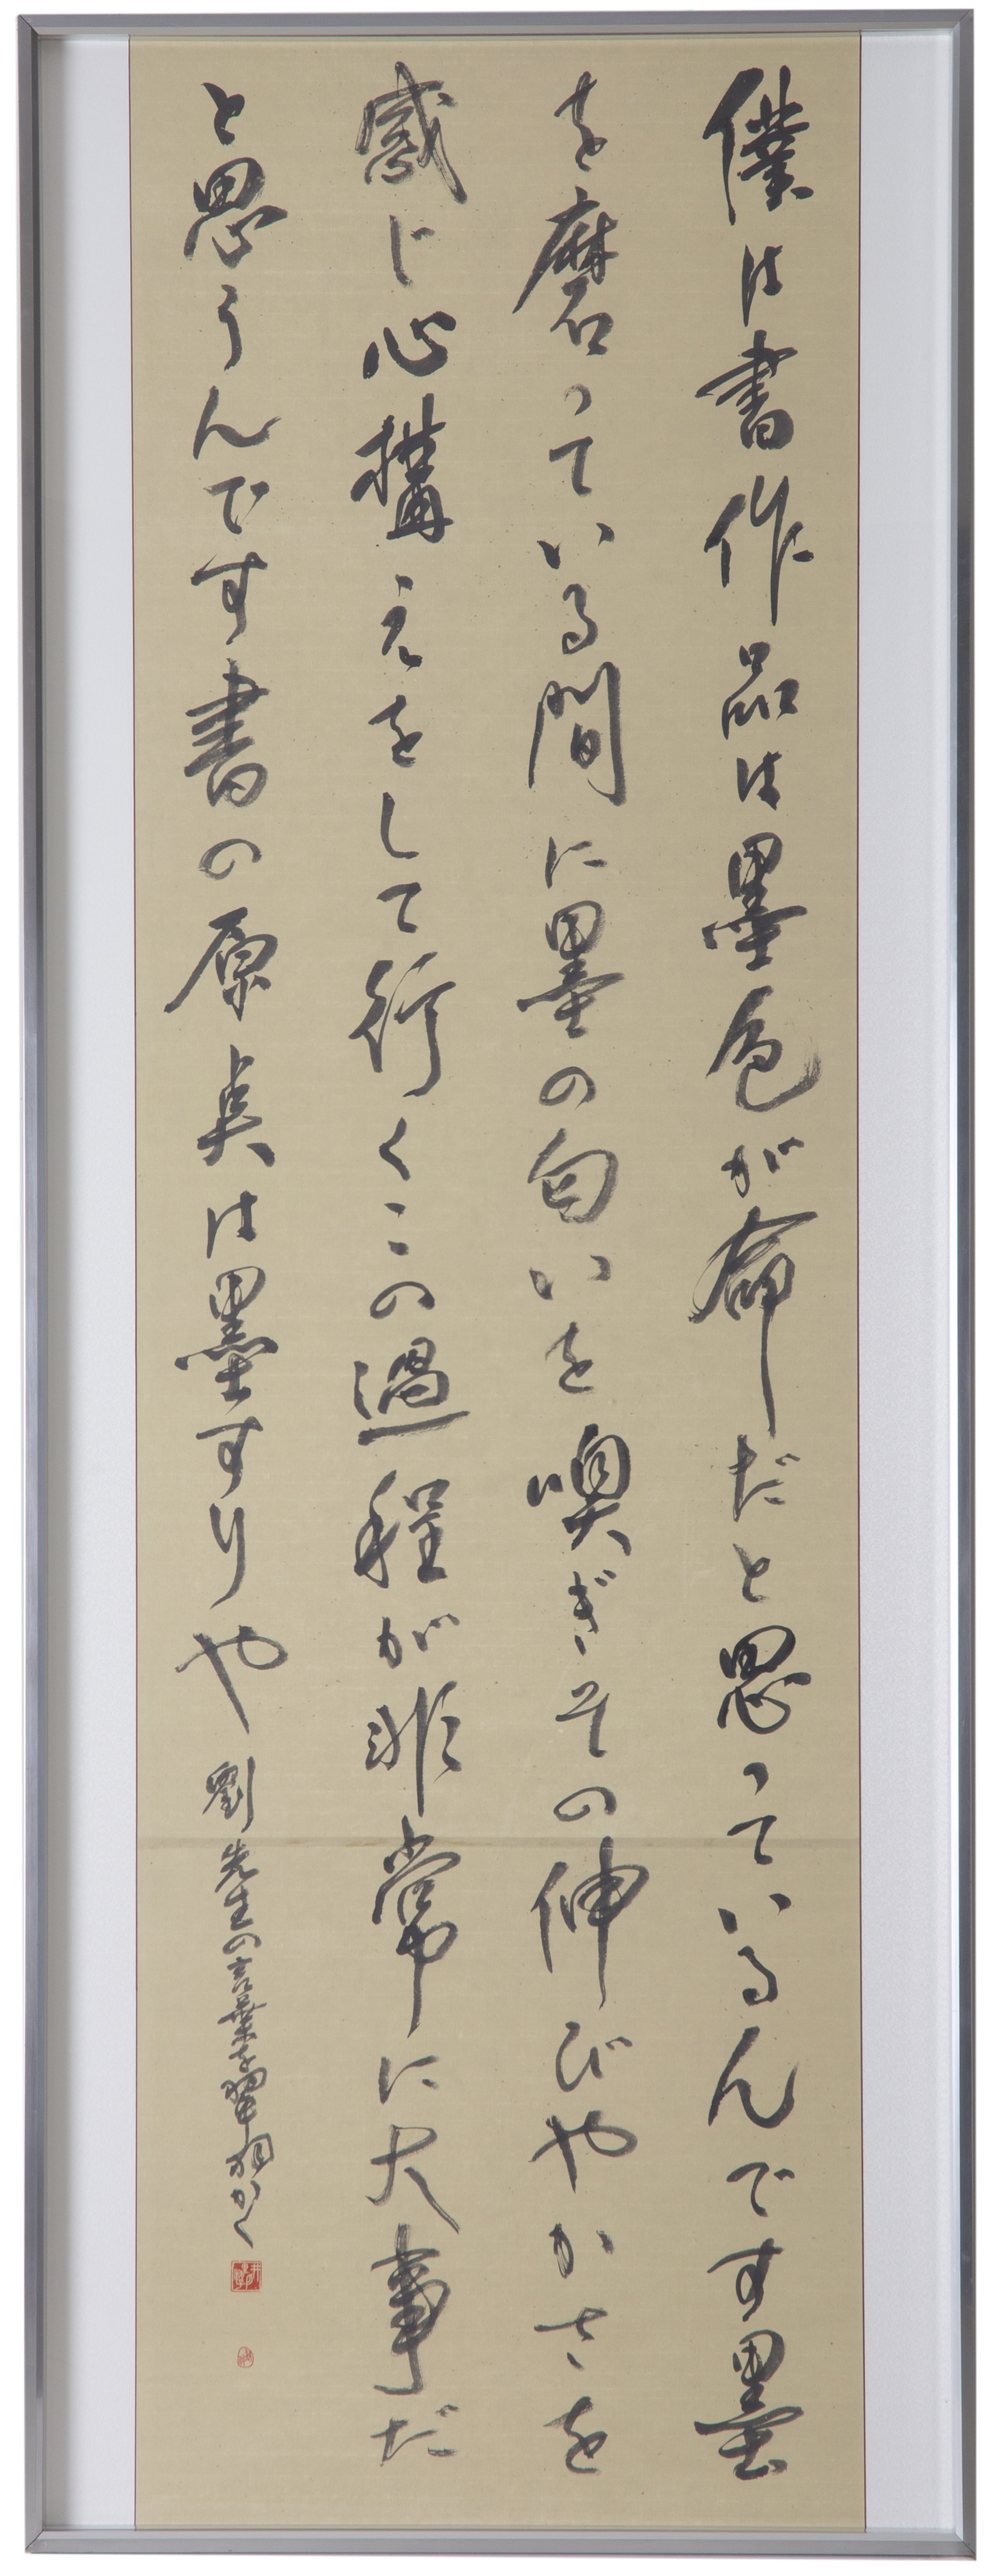 僕は書作品は墨色が命だと思っているんです墨
を磨っている間に墨の匂いを嗅ぎその伸びやかさを
感じ心構えをして行くこの過程が非常に大事だ
と思うんです書の原点は墨すりや
劉先生の言葉を翠かく